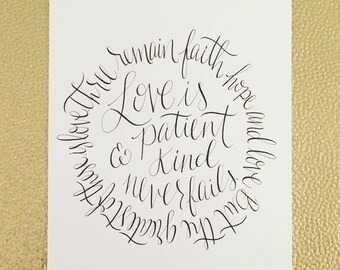 Love is
patient
& kind
never fails
three remain faith hope and love but the greatest of these is love